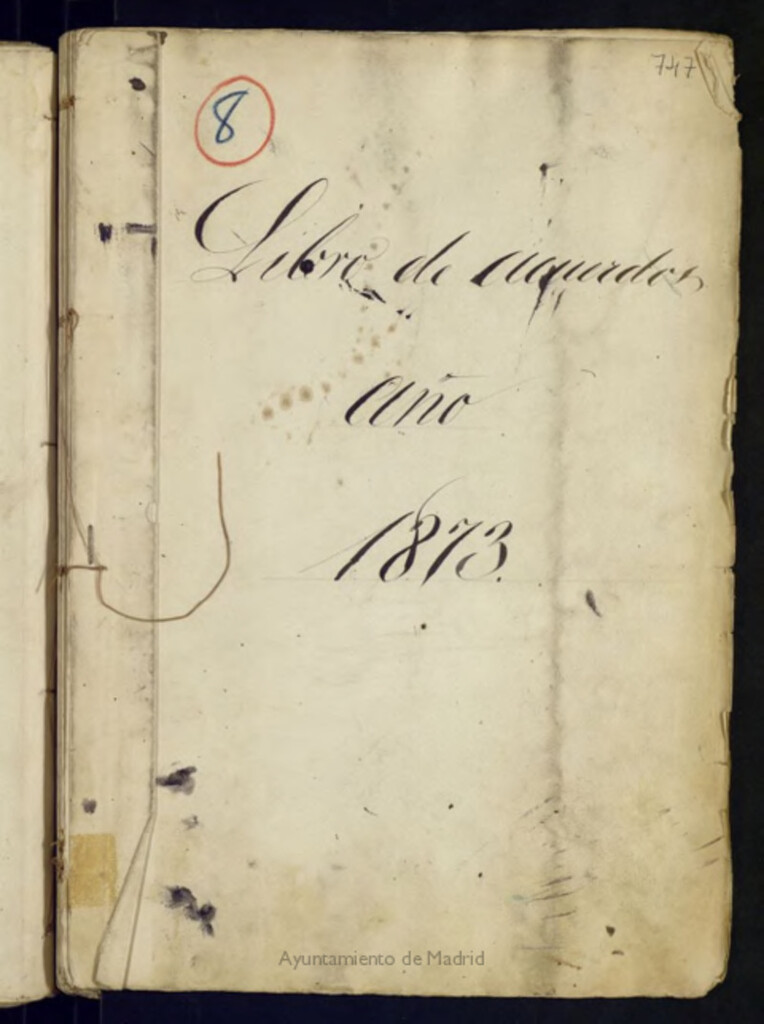 747
8
Libro de acuerdos
año
1873.
Ayuntamiento de Madrid